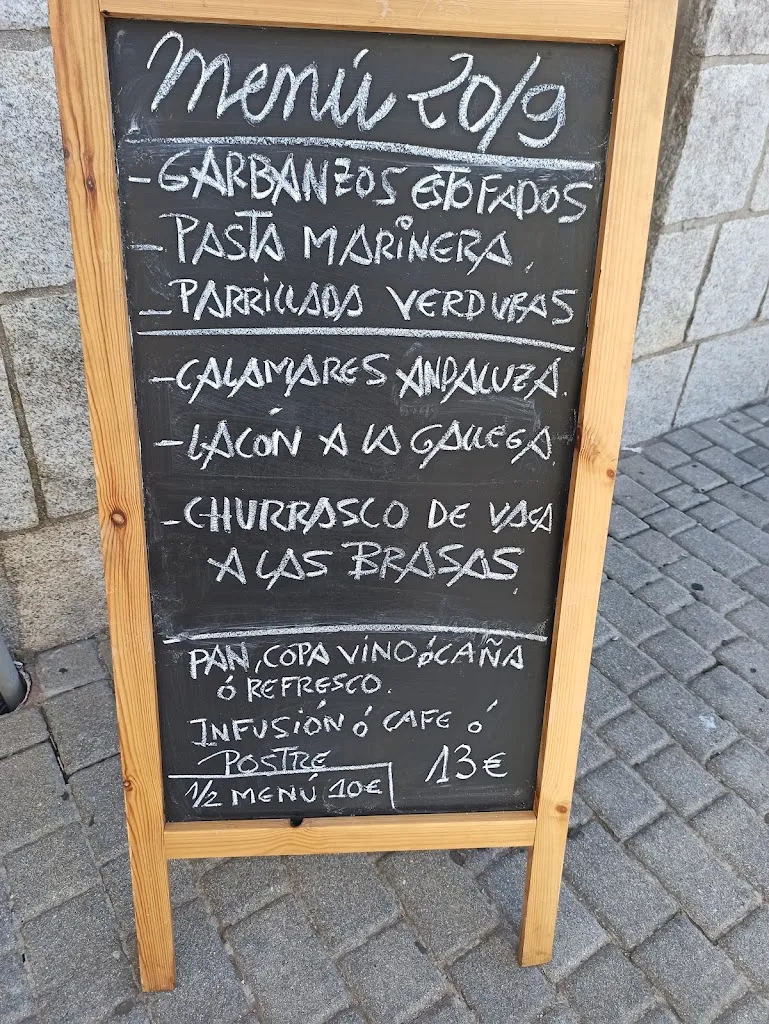 Menú 20/9
- GARBANZOS ESTOFADOS
- PASTA MARINERA.
- PARRILLADA VERDURAS
- CALAMARES ANDALUZA.
- LACÓN A LA GALLEGA.
- CHURRASCO DE VACA
A LAS BRASAS.
PAN, COPA VINO Ó CAÑA
Ó REFRESCO.
INFUSIÓN Ó CAFE Ó
POSTRE 13€
1/2 MENÚ 10€